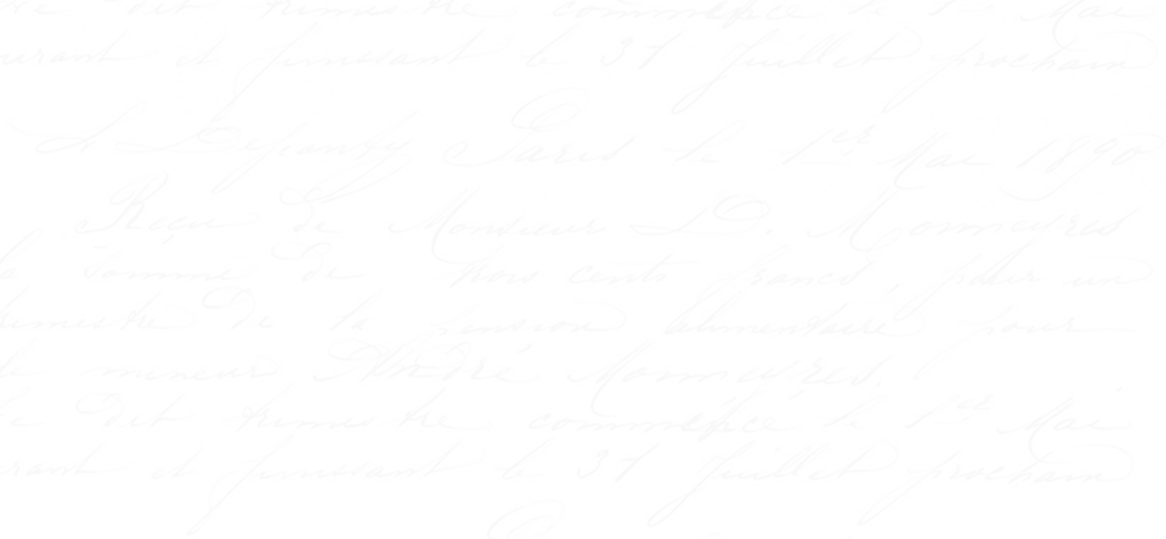 dit trimestre commence le 1er Mai
courant et finissant le 31 Juillet prochain
Paris le 1er Mai 1890
Reçu de Monsieur D.
la somme de trois cents francs, pour un
trimestre de la pension alimentaire pour
le mineur André
le dit trimestre commence le 1er Mai
courant et finissant le 31 Juillet prochain